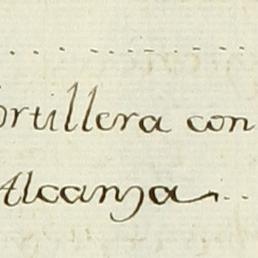 ortillera con
Alcanza